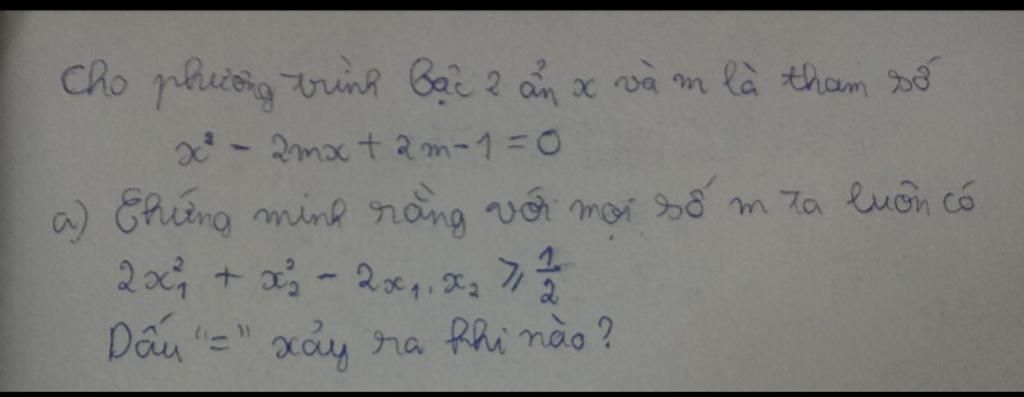 Cho phương trình bậc 2 ẩn x và m là tham số
x² - 2mx + 2m - 1 = 0
a) Chứng minh rằng với mọi số m ta luôn có
2x₁² + x₂² - 2x₁.x₂ ≥ 1/2
Dấu "=" xảy ra khi nào?